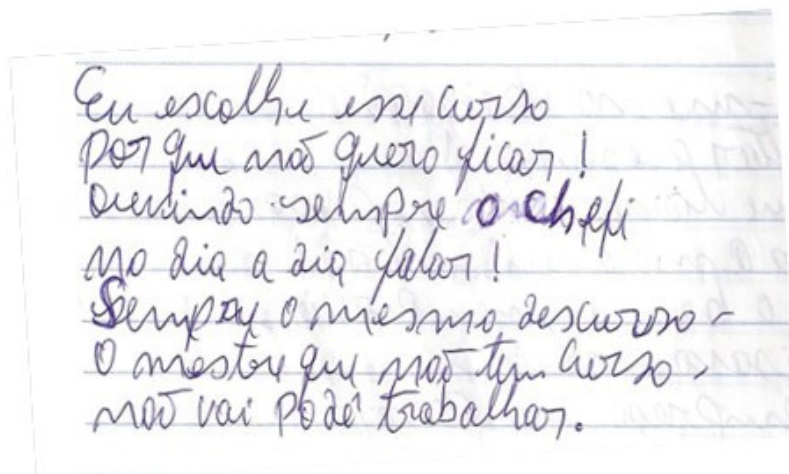 Eu escolhe esse curso
por que não quero ficar!
ouvindo sempre o chefi
no dia a dia falar!
Sempre o mesmo descurso-
O mestre que não tem curso-
não vai podé trabalhar.